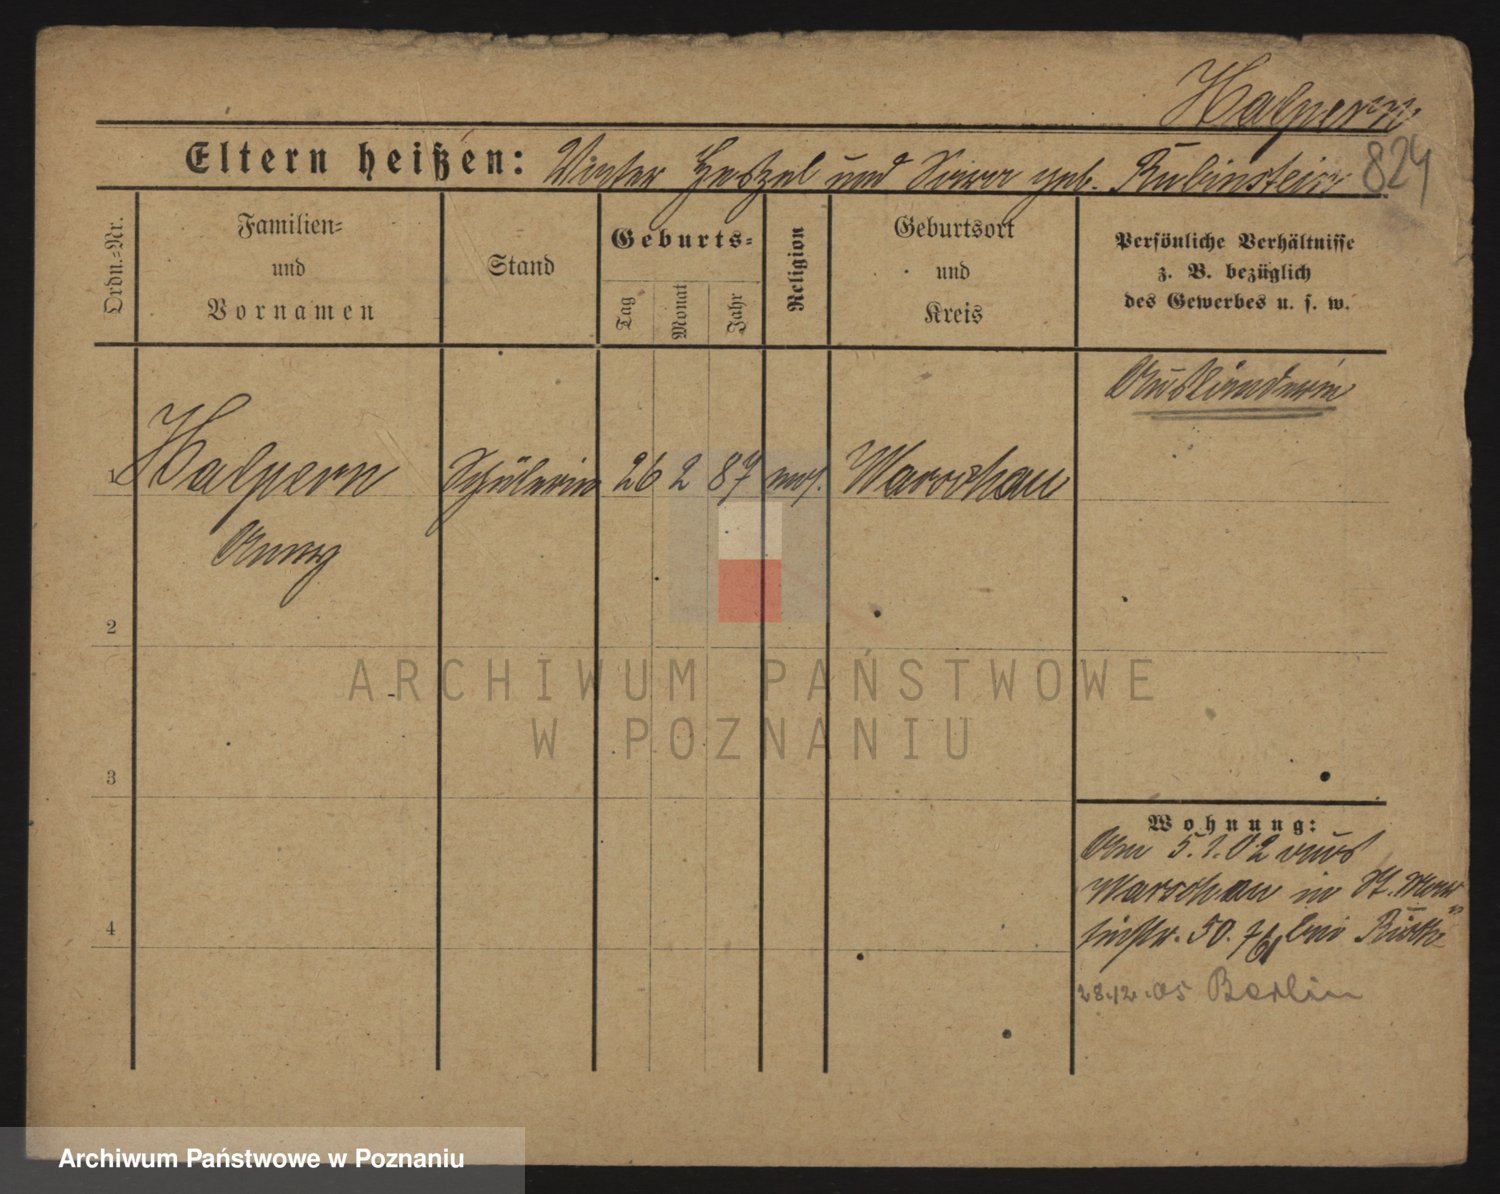 Halpern
824
Eltern heißen: Winter Heszel und Sura geb. Rubinstein
Ordn.-Nr.
Familien-
und
Vornamen
Stand
Geburts-
Tag
Monat
Jahr
Religion
Geburtsort
und
Kreis
Persönliche Verhältnisse
z. B. bezüglich
des Gewerbes u. s. w.
Ausländerin
1 Halpern Schülerin 26 2 87 mos. Warschau
Anny
2
3
4
Wohnung:
Am 5.1.02 aus
Warschau in St. Mar-
tinstr. 50. bei
28.12.05 Berlin
ARCHIWUM PAŃSTWOWE
W POZNANIU
Archiwum Państwowe w Poznaniu